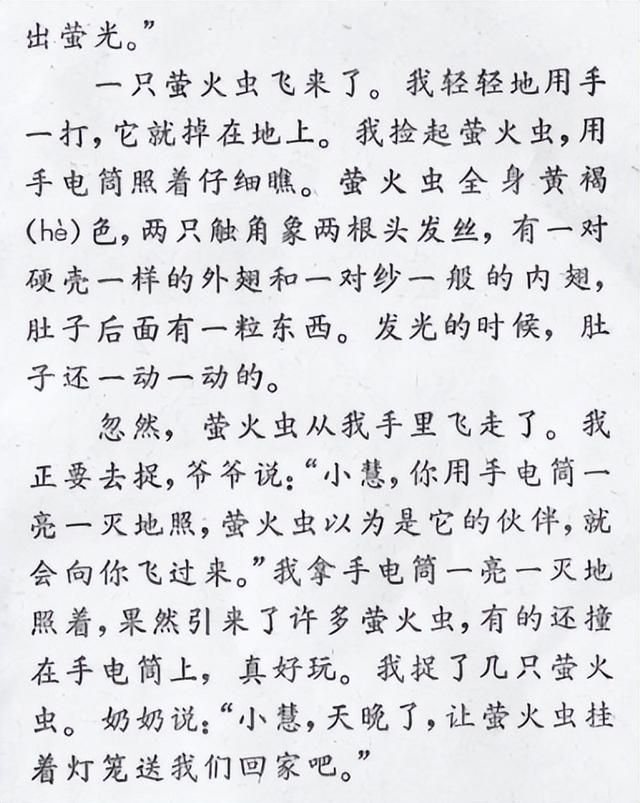 出萤光。”
一只萤火虫飞来了。我轻轻地用手
一打，它就掉在地上。我捡起萤火虫，用
手电筒照着仔细瞧。萤火虫全身黄褐
(hè)色，两只触角象两根头发丝，有一对
硬壳一样的外翅和一对纱一般的内翅，
肚子后面有一粒东西。发光的时候，肚
子还一动一动的。
忽然，萤火虫从我手里飞走了。我
正要去捉，爷爷说：“小慧，你用手电筒一
亮一灭地照，萤火虫以为是它的伙伴，就
会向你飞过来。”我拿手电筒一亮一灭地
照着，果然引来了许多萤火虫，有的还撞
在手电筒上，真好玩。我捉了几只萤火
虫。奶奶说：“小慧，天晚了，让萤火虫挂
着灯笼送我们回家吧。”